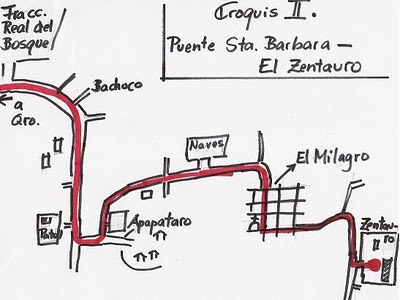 Fracc.
Real del
Bosque
Croquis II.
Puente Sta. Barbara —
El Zentauro
Bachoco
← a
Qro.
Naves
→ El Milagro
El
Apapataro
Zentau-
ro